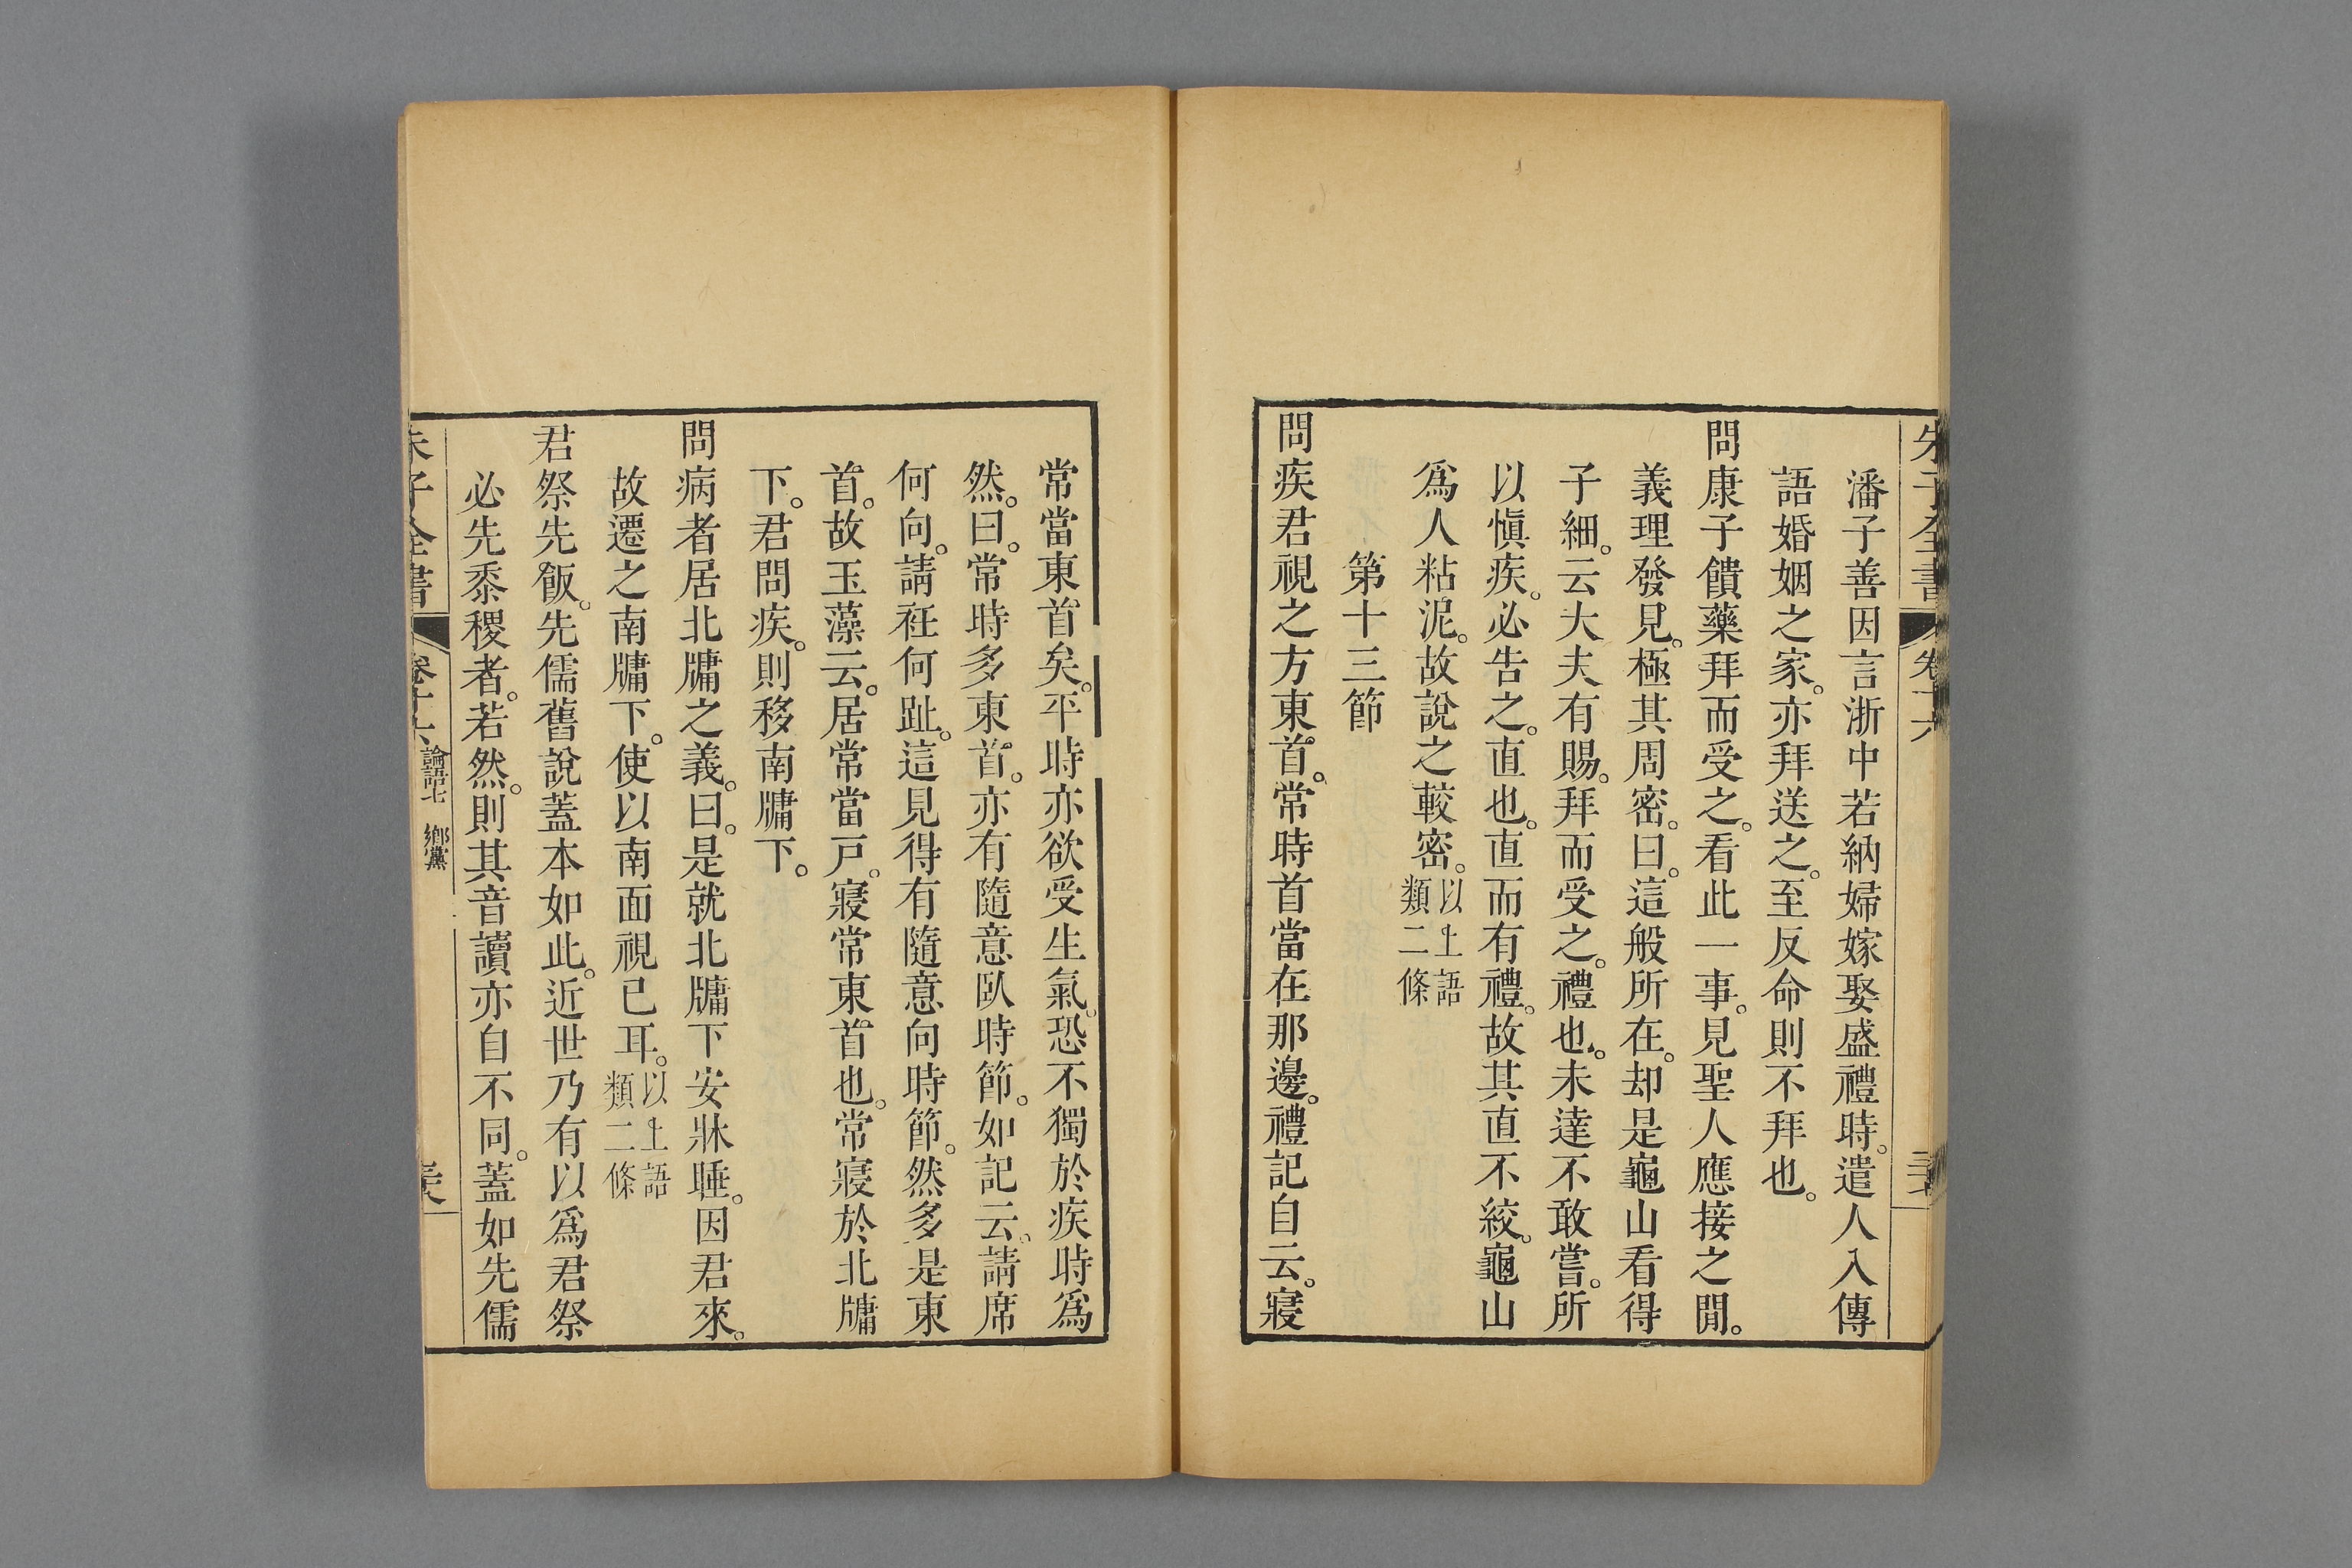 朱子全書 卷十六
潘子善因言浙中若納婦嫁娶盛禮時。遣人入傳
語婚姻之家。亦拜送之。至反命則不拜也。
問康子饋藥拜而受之。看此一事。見聖人應接之閒。
義理發見。極其周密。曰。這般所在。却是龜山看得
子細。云大夫有賜。拜而受之。禮也。未達不敢嘗。所
以愼疾。必告之。直也。直而有禮。故其直不絞。龜山
爲人粘泥。故說之較密。以上語類二條
第十三節
問疾君視之方東首。常時首當在那邊。禮記自云。寢
常當東首矣。平時亦欲受生氣。恐不獨於疾時爲
然。曰。常時多東首。亦有隨意臥時節。如記云。請席
何向。請袵何趾。這見得有隨意向時節。然多是東
首。故玉藻云。居常當戸。寢常東首也。常寢於北牖
下。君問疾。則移南牖下。
問病者居北牖之義。曰。是就北牖下安牀睡。因君來。
故遷之南牖下。使以南面視已耳。以上語類二條
君祭先飯。先儒舊說蓋本如此。近世乃有以爲君祭
必先黍稷者。若然。則其音讀亦自不同。蓋如先儒
朱子全書 卷十六 論語七 鄉黨